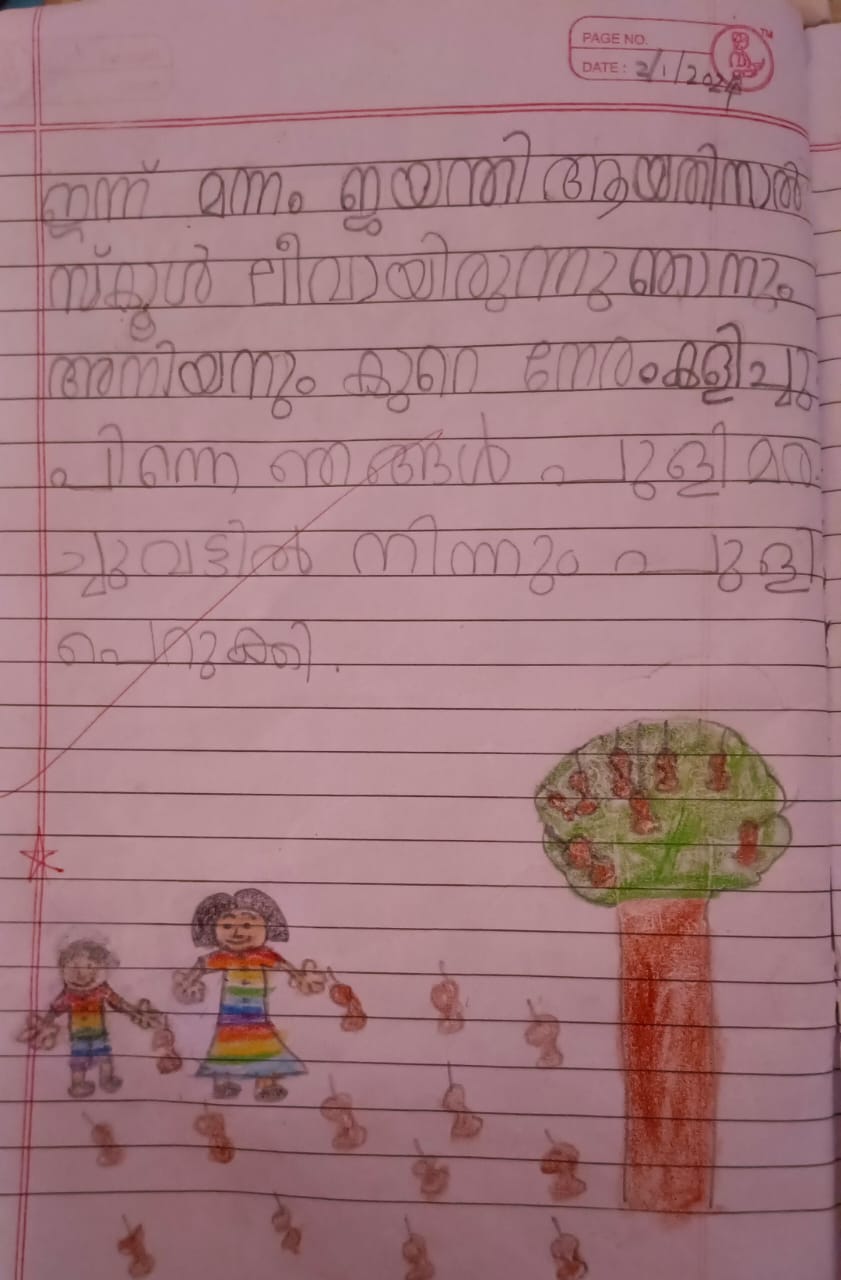 PAGE NO.
DATE: 2/1/2024
TM
ഇന്ന് മന്നം ജയന്തി ആയതിനാൽ
സ്കൂൾ ലീവായിരുന്നു ഞാനും
അനിയനും കുറെ നേരം കളിച്ചു
പിന്നെ ഞങ്ങൾ പുളി മര
ച്ചുവട്ടിൽ നിന്നും പുളി
പെറുക്കി.